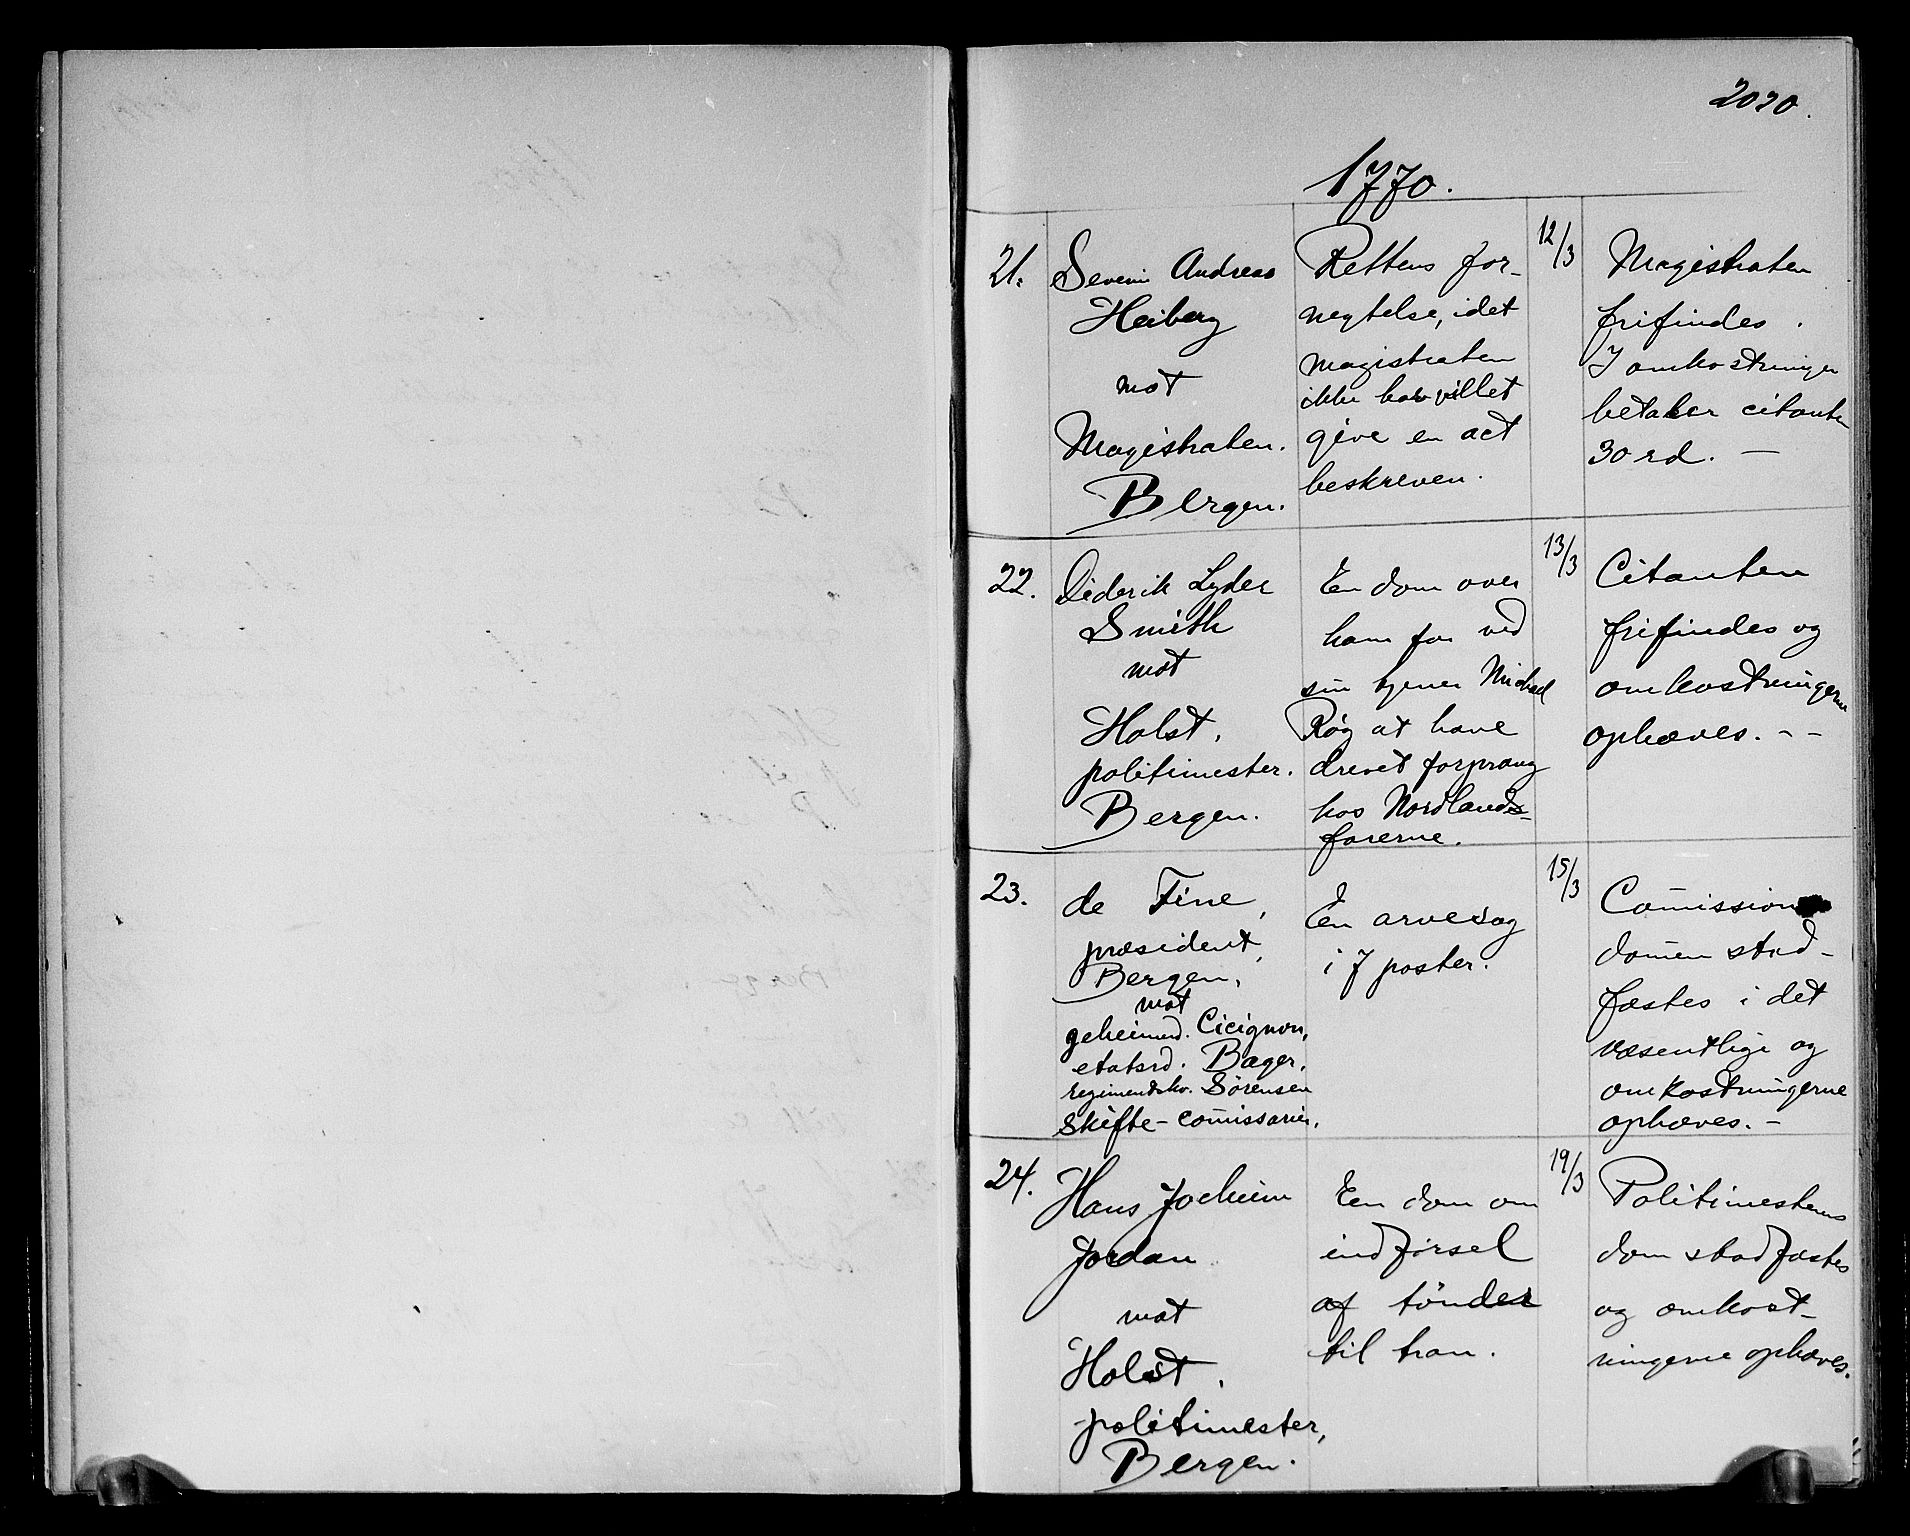 2020.
1770.
21.
Severin Andreas
Heiberg
mot
Magistraten.
Bergen.
Rettens for-
negtelse, idet
magistraten
ikke har villet
give en act
beskreven.
12/3
Magistraten
frifindes.
I omkostninger
betaler citanten
30 rd. —
22.
Diderik Lyder
Smith
mot
Holst,
politimester.
Bergen.
En dom over
ham for ved
sin tjener Michael
Røg at have
drevet forprang
hos Nordlands-
farerne.
13/3
Citanten
frifindes og
omkostningerne
ophæves. - -
23.
de Fine,
præsident,
Bergen,
mot
geheimerd. Cicignon,
etatsrd. Bager,
regimentskv. Sørensen
Skifte-com̄issarier.
En arvesag
i 7 poster.
15/3
Com̄ission
dom̄en stad-
fæstes i det
væsentlige og
omkostningerne
ophæves. -
24.
Hans Jochim
Jordan
mot
Holst,
politimester,
Bergen.
Een dom om
indførsel
af tønder
til tran.
19/3
Politimesterens
dom stadfæstes
og omkost-
ningerne ophæves.